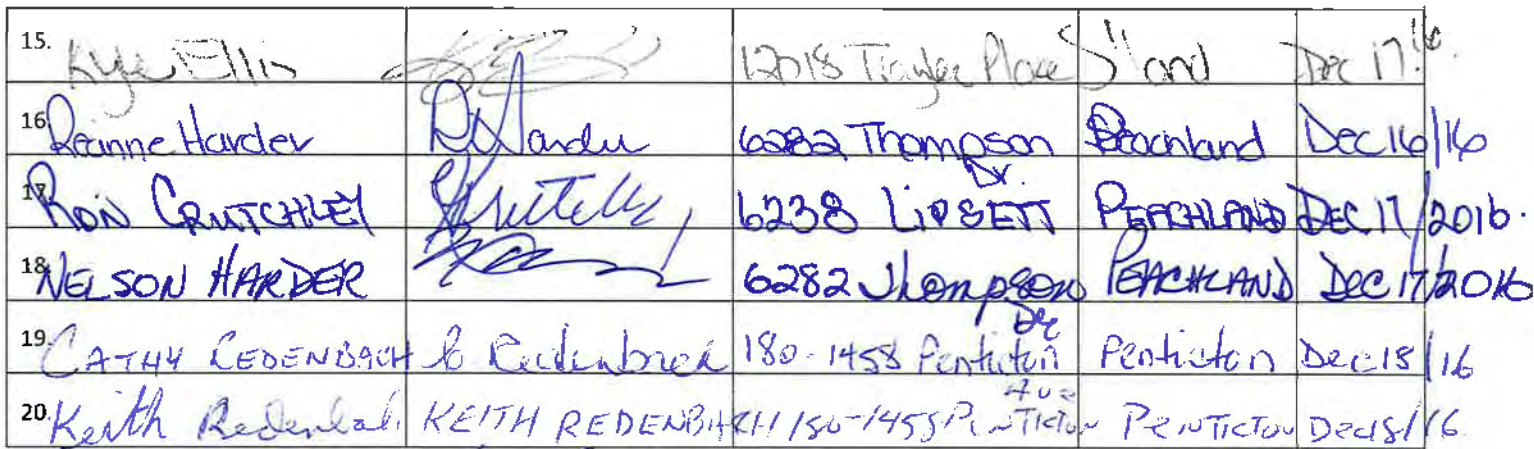 15. Kyle Ellis 12018 Trayler Place S'land Dec 17/16.
16. Reanne Harder R Harder 6282 Thompson Dr. Peachland Dec 16/16
17. RON CRUTCHLEY 6238 LIPSETT PEACHLAND DEC 17/2016.
18. NELSON HARDER 6282 Thompson Dr PEACHLAND DEC 17/2016
19. CATHY REDENBACH C Redenbach 180-1458 Penticton Ave Penticton Dec 18/16
20. Keith Redenbach KEITH REDENBACH 180-1458 PENTICTON PENTICTON Dec 18/16